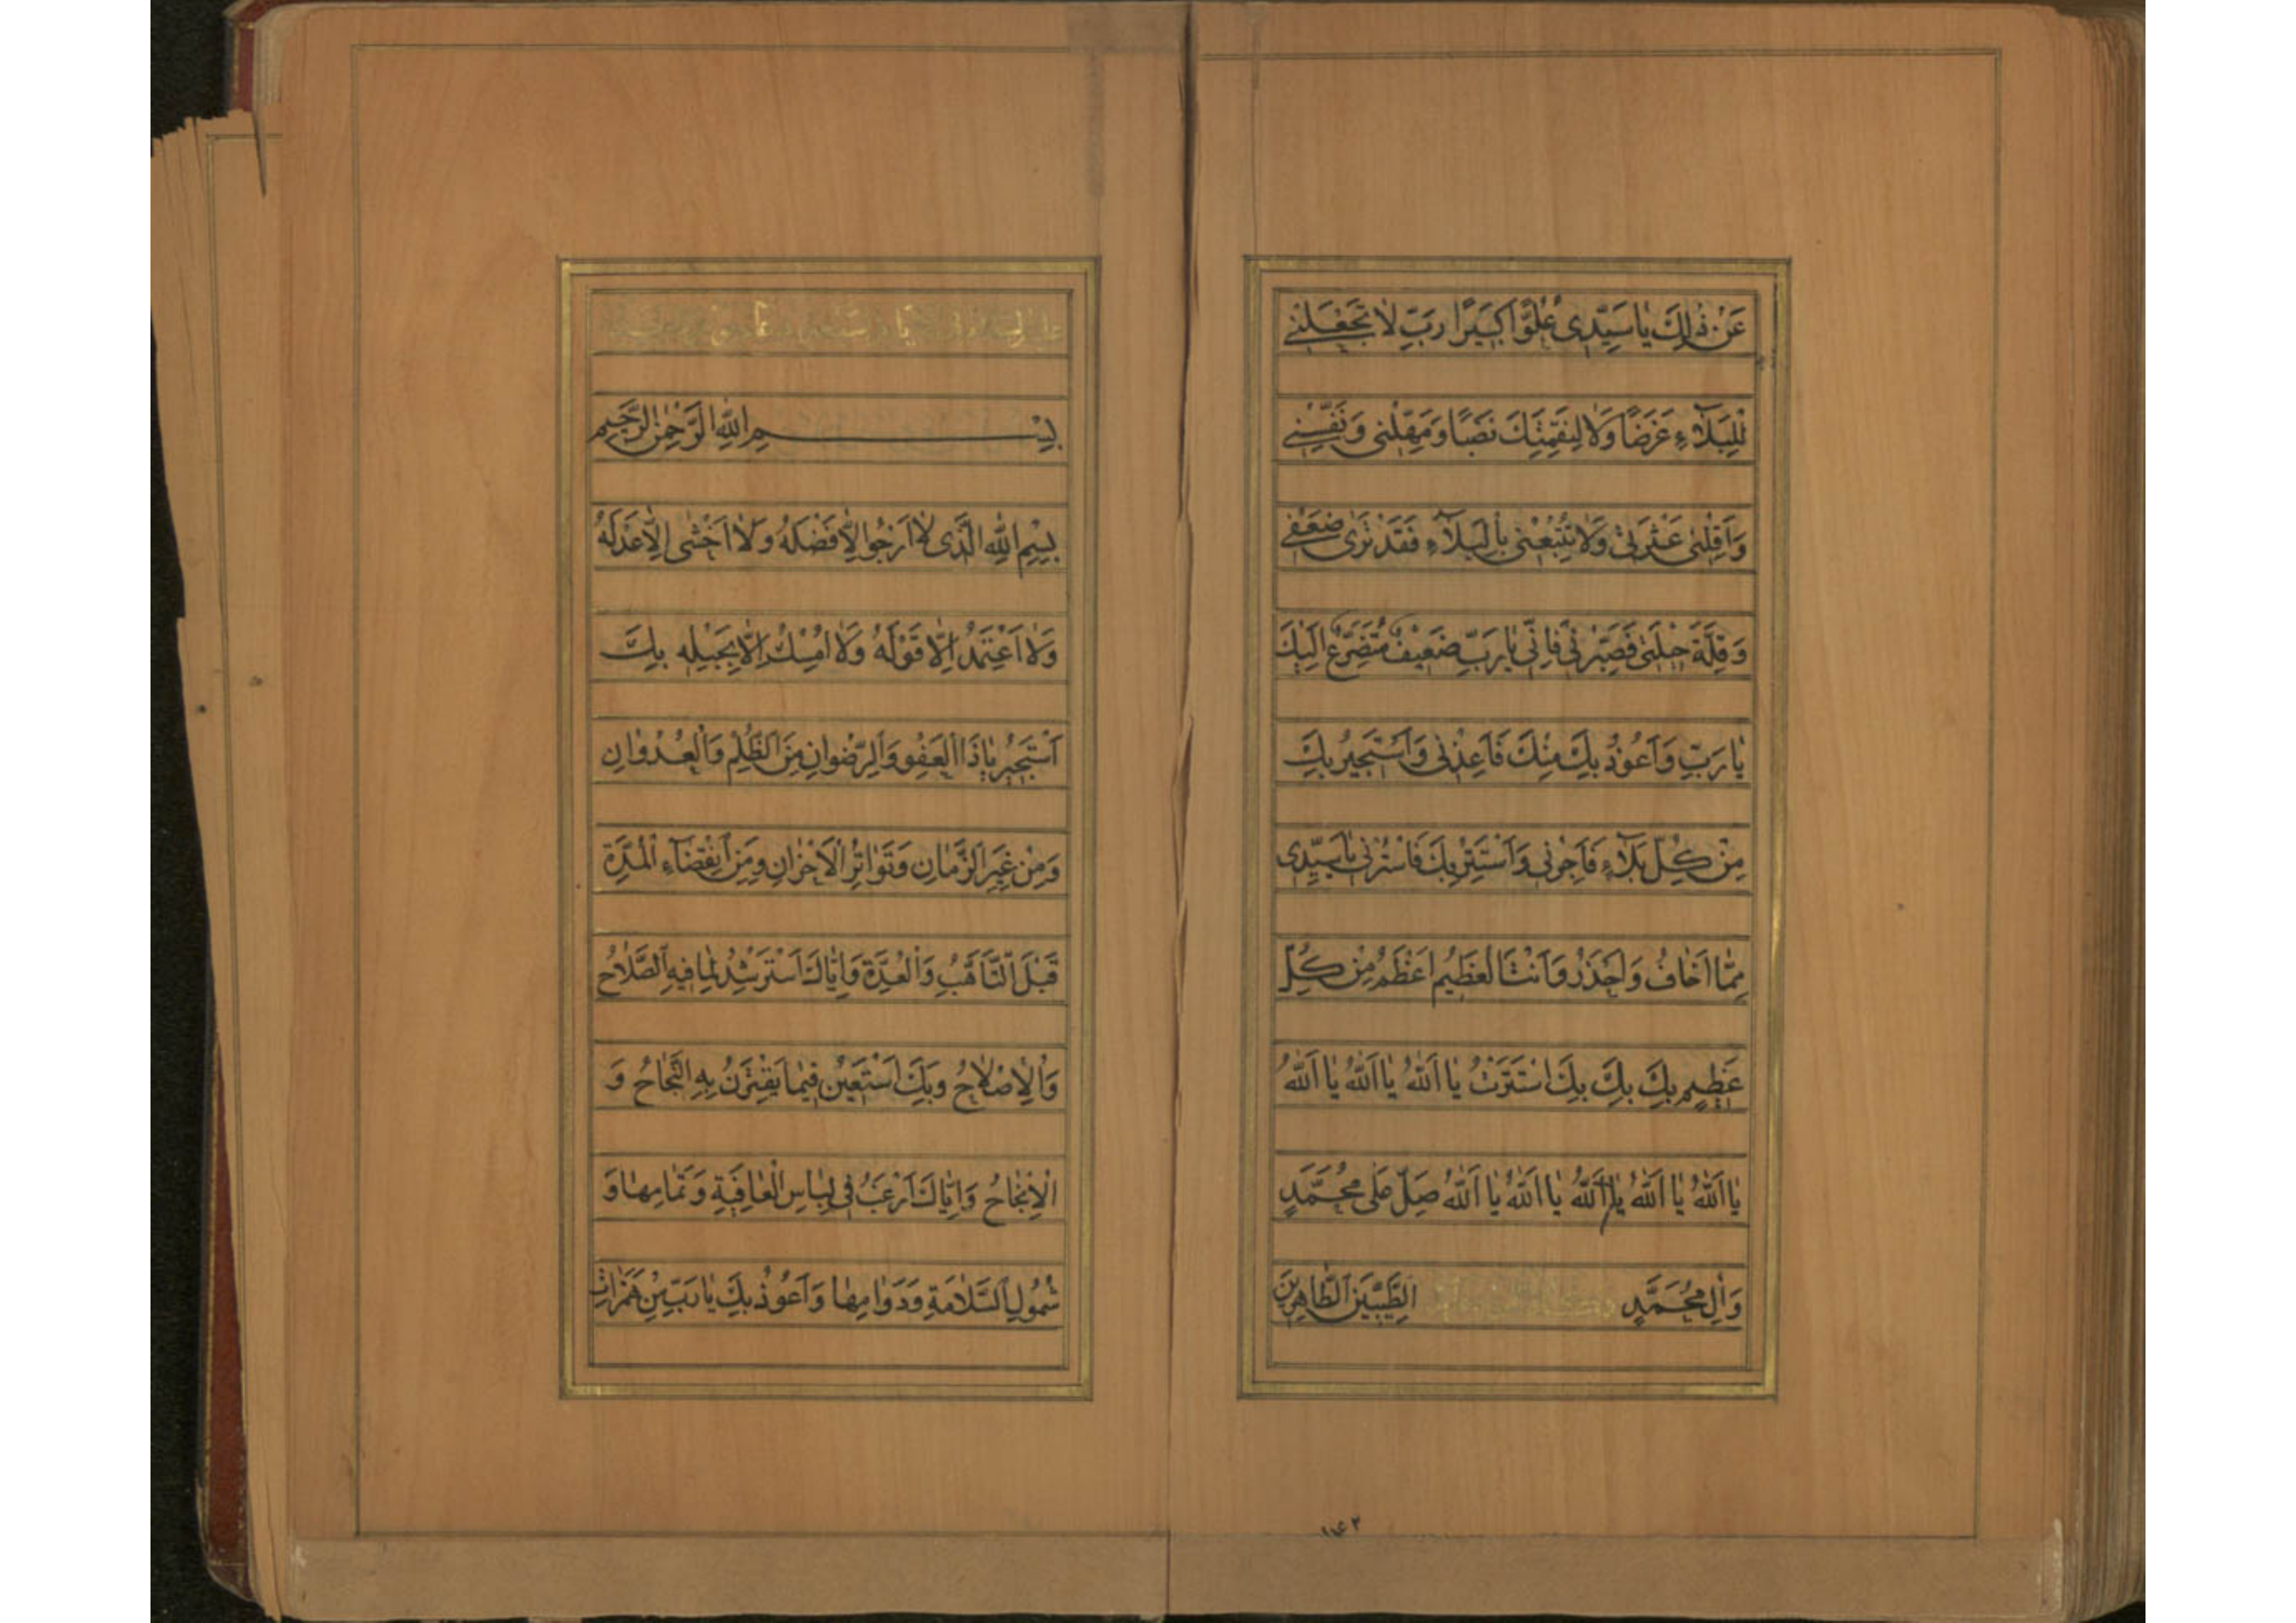 عَنْ ذٰلِكَ يٰا سَيِّدى عُلُوًّا كَبيرًا رَبِّ لٰا تَجْعَلْنى
لِلْبَلٰآءِ غَرَضًا وَلٰا لِنِقْمَتِكَ نَصَبًا وَمَهِّلْنى وَنَفِّسْنى
وَاَقِلْنى عَثْرَتى وَلٰا تُتْبِعْنى بِالْبَلٰآءِ فَقَدْ تَرٰى ضَعْفى
وَقِلَّةَ حيلَتى فَصَبِّرْنى فَاِنّى يٰا رَبِّ ضَعيفٌ مُتَضَرِّعٌ اِلَيْكَ
يٰا رَبِّ وَاَعُوذُ بِكَ مِنْكَ فَاَعِذْنى وَاَسْتَجيرُ بِكَ
مِنْ كُلِّ بَلٰآءٍ فَاَجِرْنى وَاَسْتَتِرُ بِكَ فَاسْتُرْنى يٰا سَيِّدى
مِمّٰا اَخٰافُ وَاَحْذَرُ وَاَنْتَ الْعَظيمُ اَعْظَمُ مِنْ كُلِّ
عَظيمٍ بِكَ بِكَ بِكَ اسْتَتَرْتُ يٰا اَللّٰهُ يٰا اَللّٰهُ يٰا اَللّٰهُ
يٰا اَللّٰهُ يٰا اَللّٰهُ يٰا اَللّٰهُ يٰا اَللّٰهُ يٰا اَللّٰهُ صَلِّ عَلٰى مُحَمَّدٍ
وَاٰلِ مُحَمَّدٍ الطَّيِّبينَ الطّٰاهِرينَ
١٤٣
بِسْمِ اللّٰهِ الرَّحْمٰنِ الرَّحيمِ
بِسْمِ اللّٰهِ الَّذى لٰا اَرْجُو اِلّٰا فَضْلَهُ وَلٰا اَخْشٰى اِلّٰا عَدْلَهُ
وَلٰا اَعْتَمِدُ اِلّٰا قَوْلَهُ وَلٰا اُمْسِكُ اِلّٰا بِحَبْلِهِ بِكَ
اَسْتَجيرُ يٰا ذَا الْعَفْوِ وَالرِّضْوٰانِ مِنَ الظُّلْمِ وَالْعُدْوٰانِ
وَمِنْ غِيَرِ الزَّمٰانِ وَتَوٰاتُرِ الْاَحْزٰانِ وَمِنِ انْقِضٰآءِ الْمُدَّةِ
قَبْلَ التَّاَهُّبِ وَالْعُدَّةِ وَاِيّٰاكَ اَسْتَرْشِدُ لِمٰا فيهِ الصَّلٰاحُ
وَالْاِصْلٰاحُ وَبِكَ اَسْتَعينُ فيمٰا يَقْتَرِنُ بِهِ النَّجٰاحُ وَ
الْاِنْجٰاحُ وَاِيّٰاكَ اَرْغَبُ فى لِبٰاسِ الْعٰافِيَةِ وَتَمٰامِهٰا وَ
شُمُولِ السَّلٰامَةِ وَدَوٰامِهٰا وَاَعُوذُ بِكَ يٰا رَبِّ مِنْ هَمَزٰاتِ